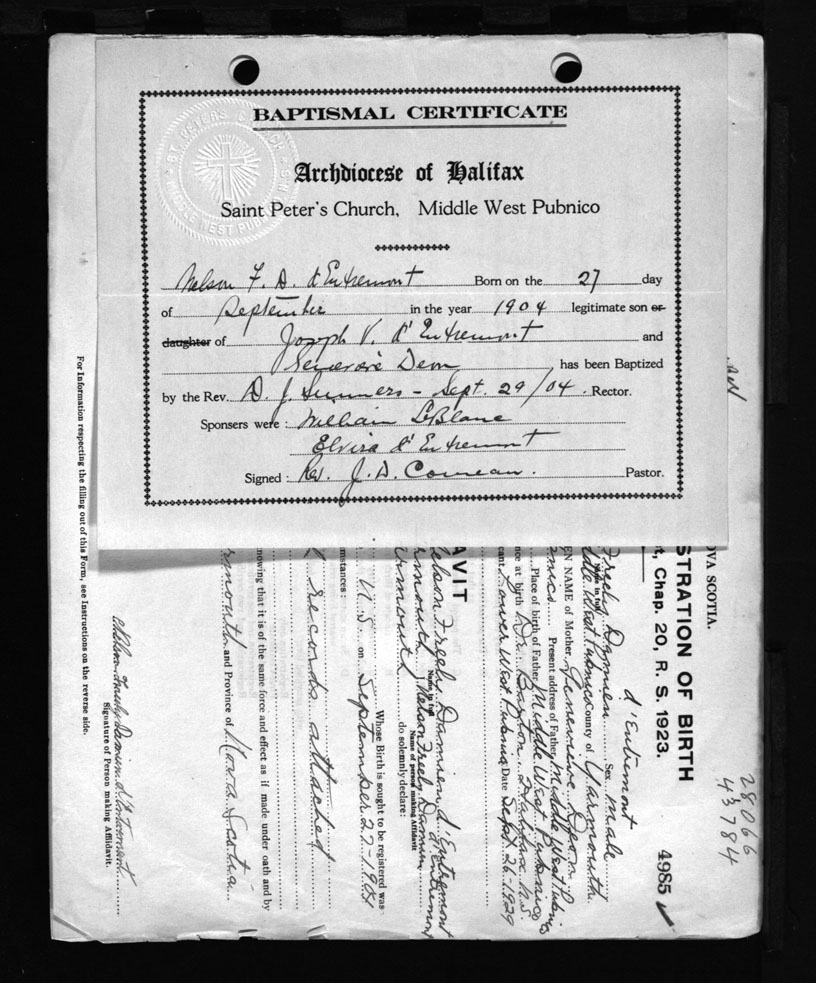 BAPTISMAL CERTIFICATE
ST. PETER'S CHURCH
MIDDLE WEST PUBNICO N.S.
Archdiocese of Halifax
Saint Peter's Church, Middle West Pubnico
Nelson F. D. d'Entremont Born on the 27 day
of September in the year 1904 legitimate son or
daughter of Joseph V. d'Entremont and
has been Baptized
by the Rev. D. J. Summers - Sept. 29/04. Rector.
Sponsers were : William LeBlanc
Elvira d'Entremont
Signed : Rev. J. D. Comeau. Pastor.
28066
43784
OVA SCOTIA.
STRATION OF BIRTH
t, Chap. 20, R. S. 1923.
4985
d'Entremont
Freely Damien Sex male
Name in full
ddle West Pubnico County of Yarmouth
EN NAME of Mother Genevieve
Present address of Father Middle West Pubnico
Place of birth of Father Middle West Pubnico
nce at birth Dr.
cant Lower West Pubnico Date Sept. 26-1929
AVIT
elson Freely Damien d'Entremont
Name in full
Nelson Freely Damien d'Entremont
Name of person making Affidavit
armouth do solemnly declare :
Whose Birth is sought to be registered was
N.S. on September 27-1904
mstances :
Records attached
nowing that it is of the same force and effect as if made under oath and by
rmouth and Province of Nova Scotia
Nelson Freely Damien d'Entremont
Signature of Person making Affidavit.
For Information respecting the filling out of this Form, see Instructions on the reverse side.